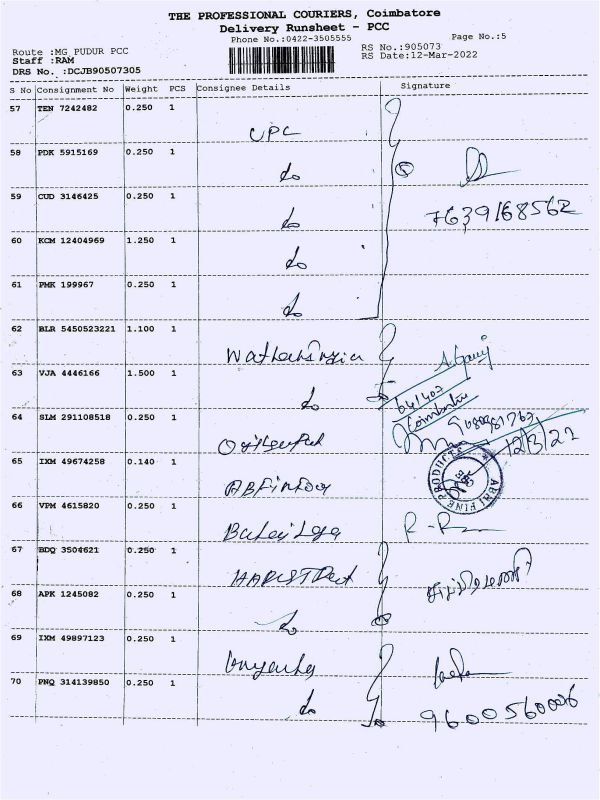 THE PROFESSIONAL COURIERS, Coimbatore
Delivery Runsheet - PCC
Phone No.:0422-3505555
Page No.:5
Route :MG PUDUR PCC
RS No.:905073
Staff :RAM
RS Date:12-Mar-2022
DRS No. :DCJB90507305
S No Consignment No Weight PCS Consignee Details Signature
57 TEN 7242482 0.250 1 UPC
58 PDK 5915169 0.250 1 do
59 CUD 3146425 0.250 1 do 7639168562
60 KCM 12404969 1.250 1 do
61 PMK 199967 0.250 1 do
62 BLR 5450523221 1.100 1
63 VJA 4446166 1.500 1 do 641407
Coimbatore
64 SLM 291108518 0.250 1
12/3/22
65 IXM 49674258 0.140 1
ABHI FINE PRODUCTS
66 VPM 4615820 0.250 1
67 BDQ 3504621 0.250 1
68 APK 1245082 0.250 1 do
69 IXM 49897123 0.250 1
70 PNQ 314139850 0.250 1 do 9600560006